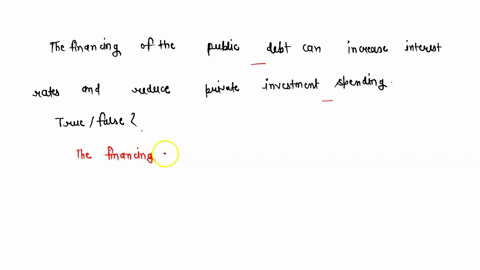 The financing of the public debt can increase interest
rates and reduce private investment spending.
True/false?
The financing